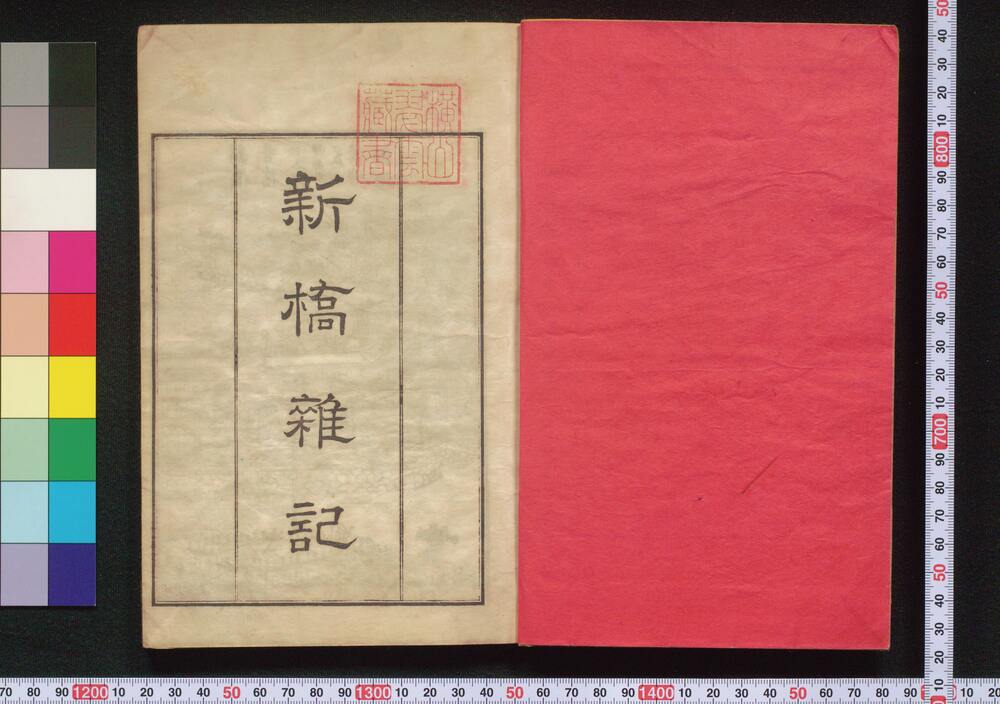 新橋雜記
70 80 90 1200 10 20 30 40 50 60 70 80 90 1300 10 20 30 40 50 60 70 80 90 1400 10 20 30 40 50 60 70 80 90 10 20
50 40 30 20 10 800 90 80 70 60 50 40 30 20 10 700 90 80 70 60 50 40 30 20 10